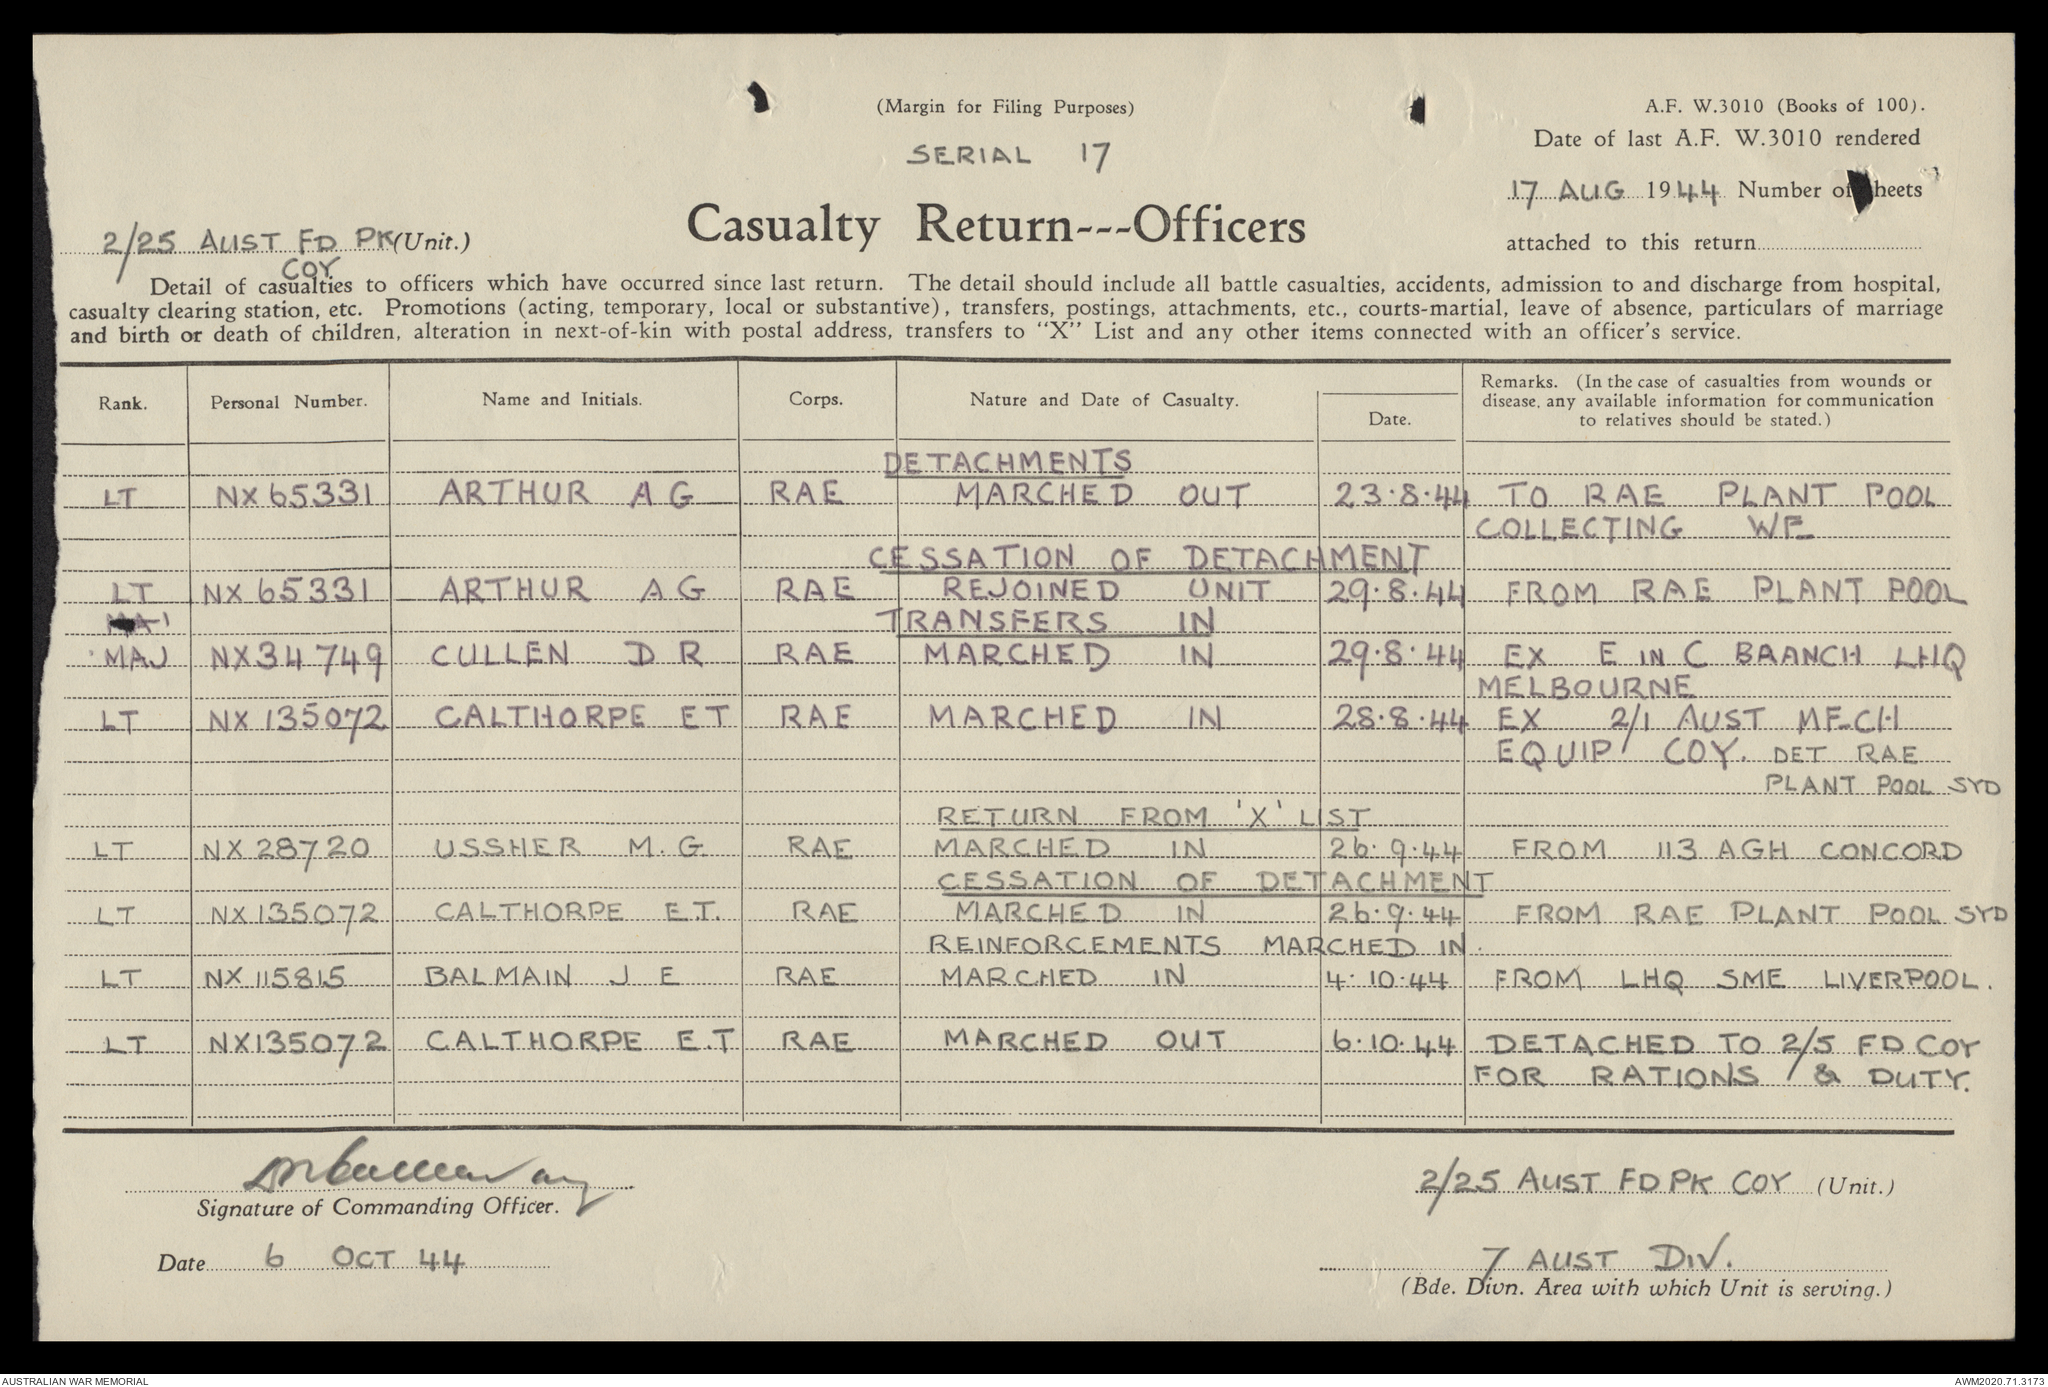 (Margin for Filing Purposes)
A.F. W.3010 (Books of 100).
SERIAL 17
Date of last A.F. W.3010 rendered
17 AUG 1944 Number of sheets
attached to this return
2/25 AUST FD PK (Unit.)
COY
Casualty Return---Officers
Detail of casualties to officers which have occurred since last return. The detail should include all battle casualties, accidents, admission to and discharge from hospital,
casualty clearing station, etc. Promotions (acting, temporary, local or substantive), transfers, postings, attachments, etc., courts-martial, leave of absence, particulars of marriage
and birth or death of children, alteration in next-of-kin with postal address, transfers to "X" List and any other items connected with an officer's service.
Rank. Personal Number. Name and Initials. Corps. Nature and Date of Casualty. Date. Remarks. (In the case of casualties from wounds or
disease, any available information for communication
to relatives should be stated.)
DETACHMENTS
LT NX65331 ARTHUR A G RAE MARCHED OUT 23.8.44 TO RAE PLANT POOL
COLLECTING WE
CESSATION OF DETACHMENT
LT NX65331 ARTHUR A G RAE REJOINED UNIT 29.8.44 FROM RAE PLANT POOL
TRANSFERS IN
MAJ NX34749 CULLEN D R RAE MARCHED IN 29.8.44 EX E IN C BRANCH LHQ
MELBOURNE
LT NX135072 CALTHORPE E T RAE MARCHED IN 28.8.44 EX 2/1 AUST MECH
EQUIP COY. DET RAE
PLANT POOL SYD
RETURN FROM 'X' LIST
LT NX28720 USSHER M.G RAE MARCHED IN 26.9.44 FROM 113 AGH CONCORD
CESSATION OF DETACHMENT
LT NX135072 CALTHORPE E.T. RAE MARCHED IN 26.9.44 FROM RAE PLANT POOL SYD
REINFORCEMENTS MARCHED IN.
LT NX115815 BALMAIN J E RAE MARCHED IN 4.10.44 FROM LHQ SME LIVERPOOL.
LT NX135072 CALTHORPE E.T RAE MARCHED OUT 6.10.44 DETACHED TO 2/5 FD COY
FOR RATIONS & DUTY.
DRCullen Maj
Signature of Commanding Officer.
2/25 AUST FD PK COY (Unit.)
Date 6 OCT 44
7 AUST DIV.
(Bde. Divn. Area with which Unit is serving.)
AUSTRALIAN WAR MEMORIAL
AWM2020.71.3173